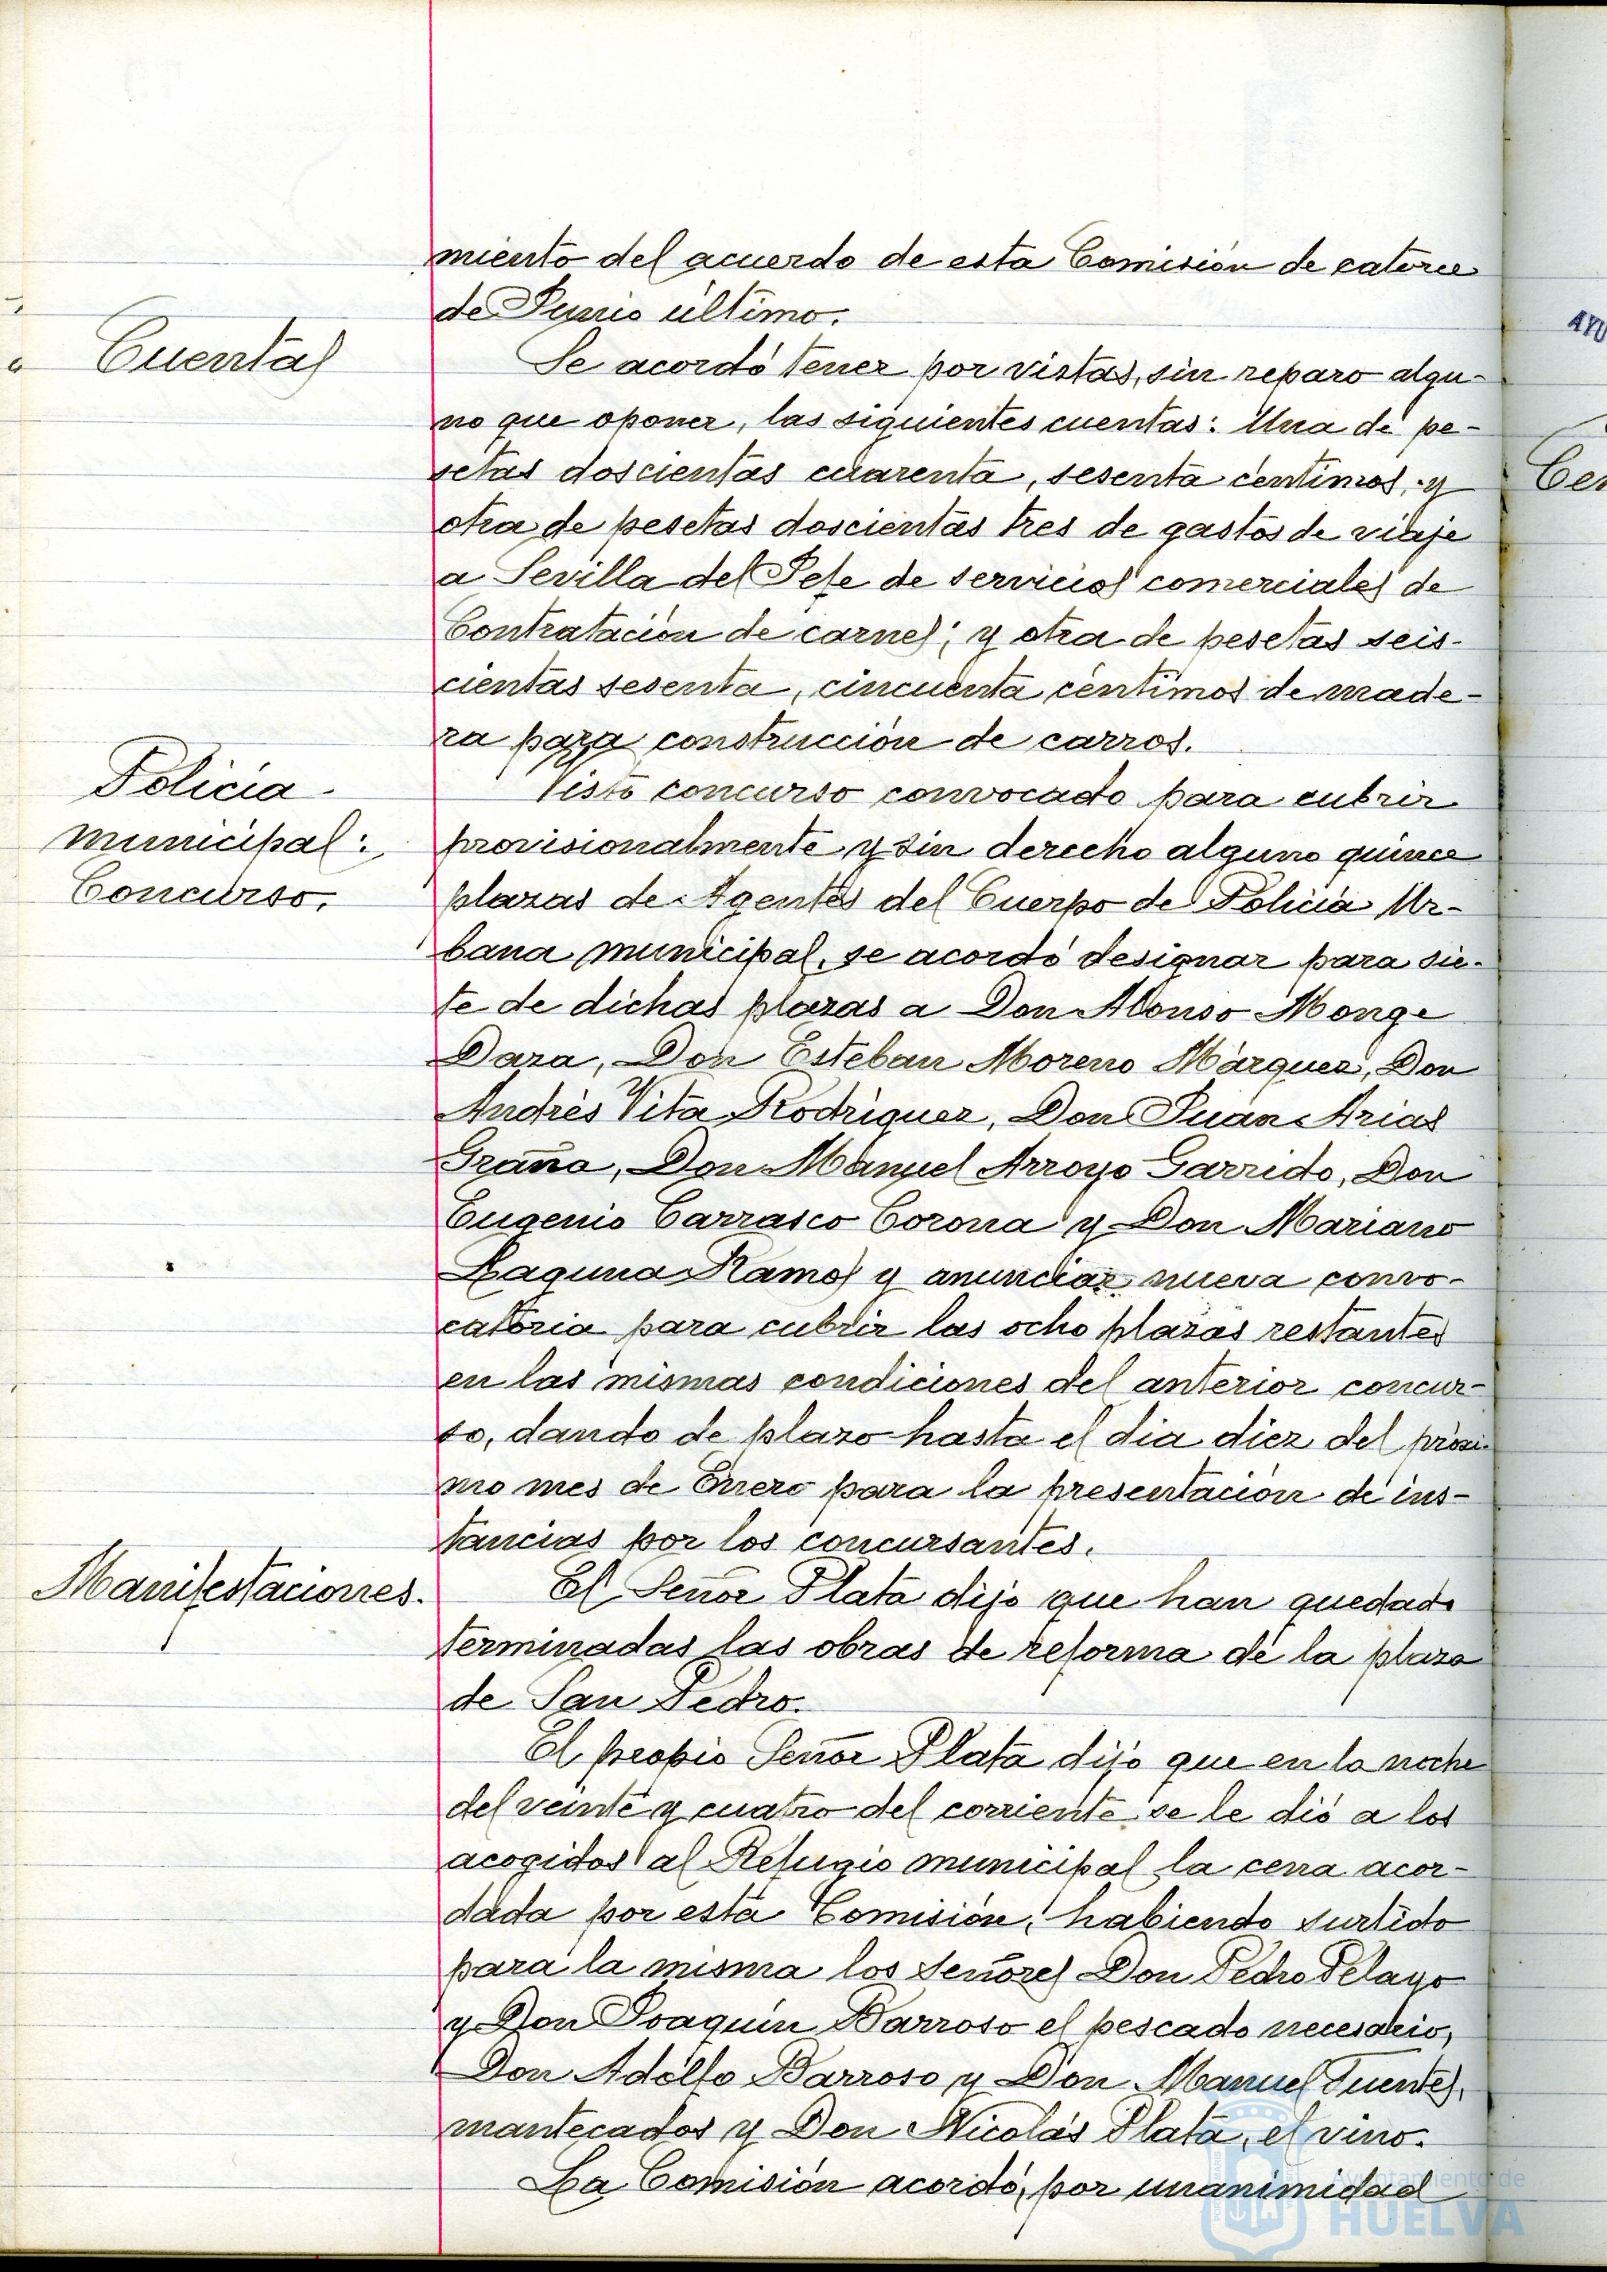 miento del acuerdo de esta Comisión de catorce
de Junio último.
Cuentas
Se acordó tener por vistas, sin reparo algu-
no que oponer, las siguientes cuentas: Una de pe-
setas doscientas cuarenta, sesenta céntimos, y
otra de pesetas doscientas tres de gastos de viaje
a Sevilla del Jefe de servicios comerciales de
Contratación de carnes; y otra de pesetas seis-
cientas sesenta, cincuenta céntimos de made-
ra para construcción de carros.
Policía
municipal:
Concurso.
Visto concurso convocado para cubrir
provisionalmente y sin derecho alguno quince
plazas de Agentes del Cuerpo de Policía Ur-
bana municipal, se acordó designar para sie-
te de dichas plazas a Don Alonso Monge
Daza, Don Esteban Moreno Márquez, Don
Andrés Vita Rodríguez, Don Juan Arias
Graña, Don Manuel Arroyo Garrido, Don
Eugenio Carrasco Corona y Don Mariano
Laguna Ramos y anunciar nueva convo-
catoria para cubrir las ocho plazas restantes
en las mismas condiciones del anterior concur-
so, dando de plazo hasta el dia diez del próxi-
mo mes de Enero para la presentación de ins-
tancias por los concursantes.
Manifestaciones.
El Señor Plata dijo que han quedado
terminadas las obras de reforma de la plaza
de San Pedro.
El propio Señor Plata dijo que en la noche
del veinte y cuatro del corriente se le dió a los
acogidos al Refugio municipal la cena acor-
dada por esta Comisión, habiendo surtido
para la misma los señores Don Pedro Pelayo
y Don Joaquín Barroso el pescado necesario,
Don Adolfo Barroso y Don Manuel Fuentes,
mantecados y Don Nicolás Plata, el vino.
La Comisión acordó, por unanimidad
Ayuntamiento de
HUELVA
AYU
Cer